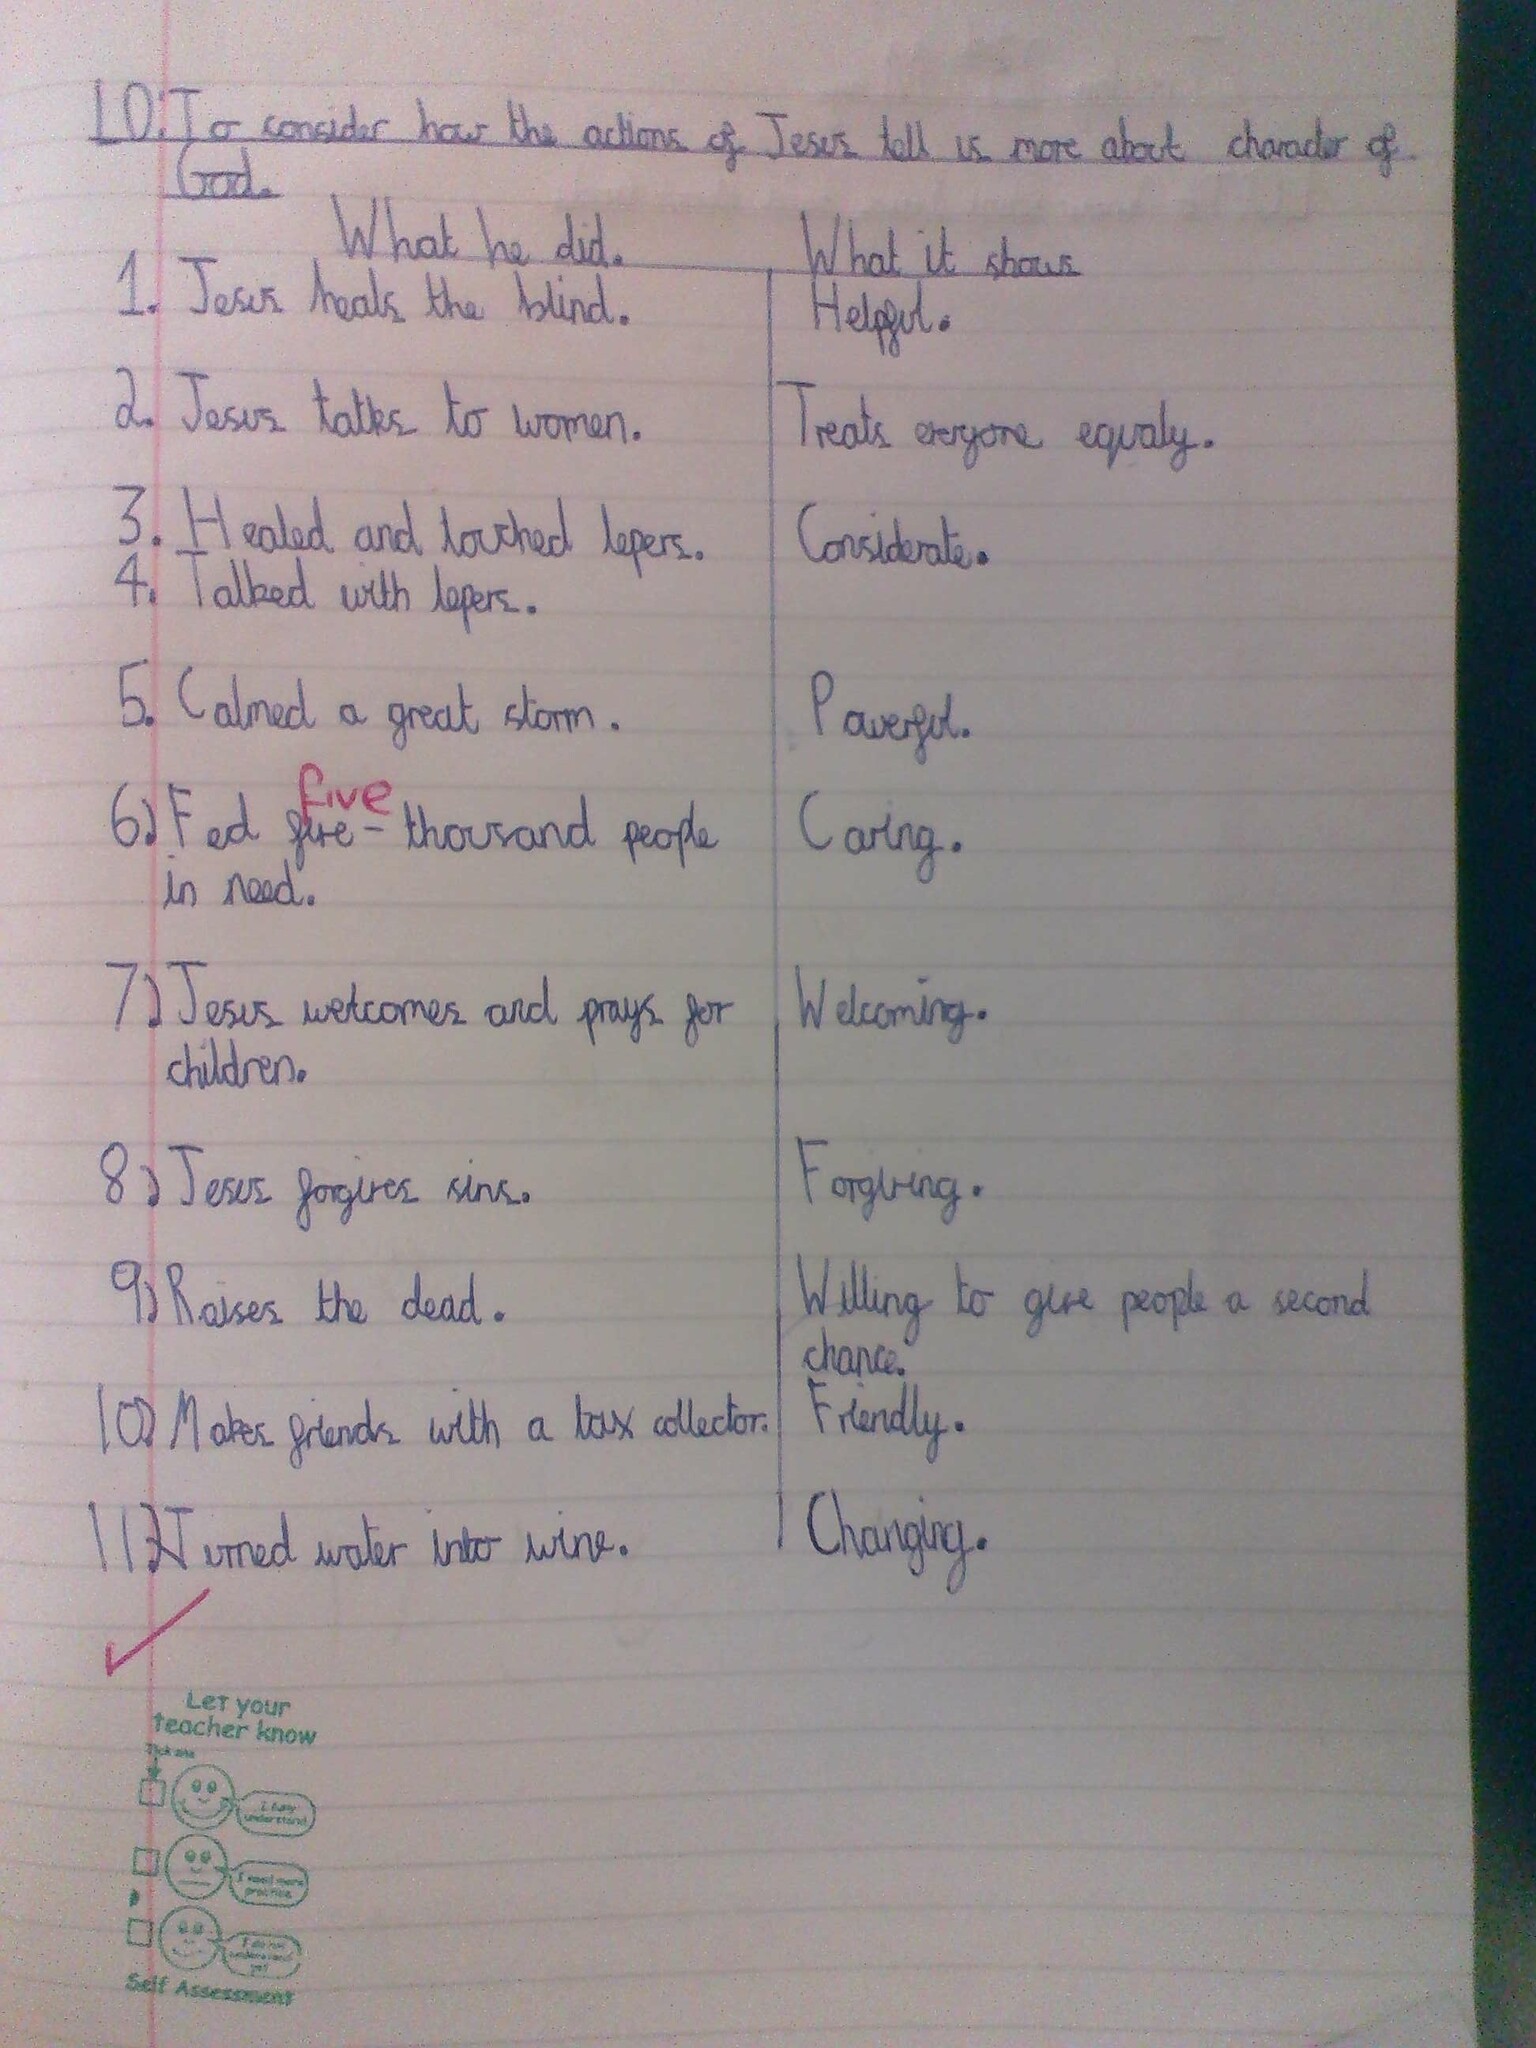 LO: To consider how the actions of Jesus tell us more about character of
God.
What he did. What it shows
1. Jesus heals the blind. Helpful.
2. Jesus talks to women. Treats everyone equaly.
3. Healed and touched lepers. Considerate.
4. Talked with lepers.
5. Calmed a great storm. Powerful.
five
6) Fed five-thousand people Caring.
in need.
7) Jesus welcomes and prays for Welcoming.
children.
8) Jesus forgives sins. Forgiving.
9) Raises the dead. Willing to give people a second
chance.
10) Makes friends with a tax collector. Friendly.
11) Turned water into wine. Changing.
Let your
teacher know
Tick one
I fully
understand
I need more
practice
I do not
understand
yet
Self Assessment